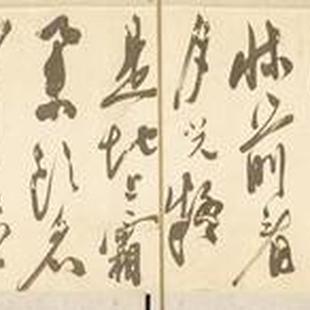 牀前看
月光疑
是地上霜
舉頭望